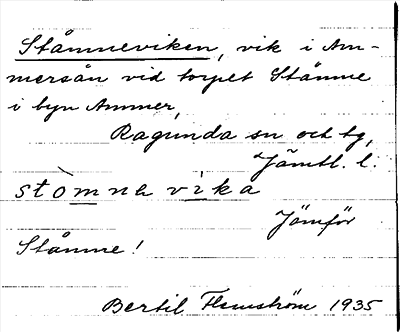 Ståmneviken, vik i Am-
mersån vid torpet Ståmne
i byn Ammer,
Ragunda sn och tg,
Jämtl. l.
stòmna vika
Jämför
Ståmne!
Bertil Flemström 1935